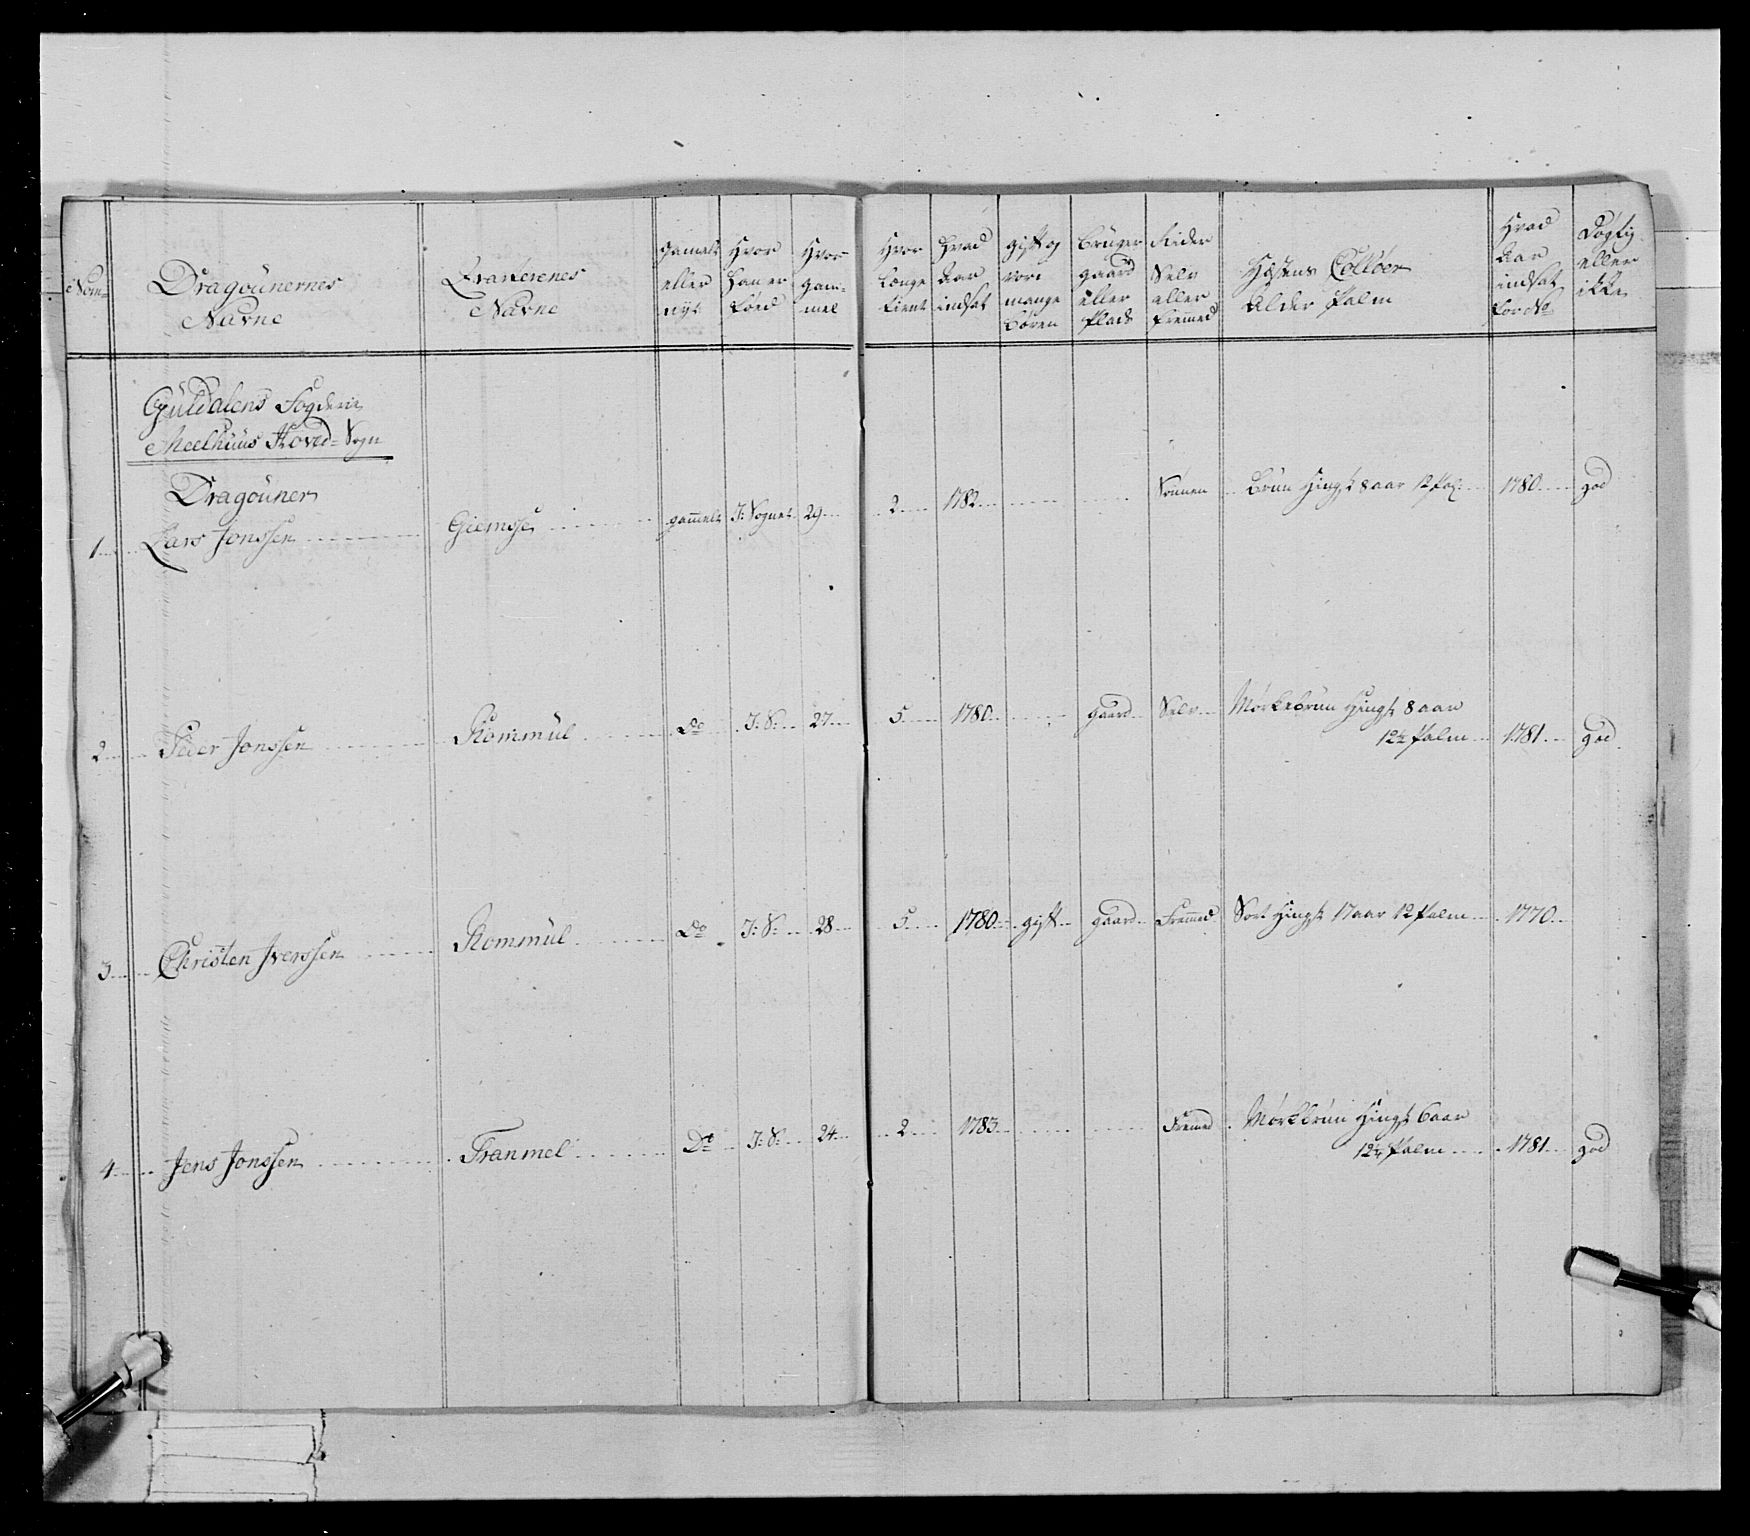 Nom=
Dragounernes
Navne
Qvarterenes
Navne
gamelt
eller
nyt
Hvor
Han er
föed
Hvor
gam=
mel
Hvor
Længe
tient
Hvad
Aar
indsat
gift og
vor
mange
Börn
Bruger
gaard
eller
Plads
Rider
Selv
eller
fremed
Hæstens Collöer
Alder Palm
Hvad
Aar
indsat
Dögtig
eller
ikke
Guldalens Fogderie
Meelhuus Hoved=Sogn
Dragouner
1 Lars Jonssen Giemse gammelt I: Sognet 29 2 1782 Sönnen Brun Hingst 8 aar 12 Pal: 1780 god
2 Peder Jonssen Kommül Do I: S: 27 5 1780 gaard Selv Mörkebrun Hingst 8 aar
12¼ Palm 1781 god
3 Christen Iverssen Kommül Do I: S: 28 5 1780 gift gaard Fremed Sort Hingst 17 aar 12 Palm 1770
4 Jens Jonssen Tranmel Do I: S: 24 2 1783 Fremed Mörkbrun Hingst 6 aar
12¼ Palm 1781 god